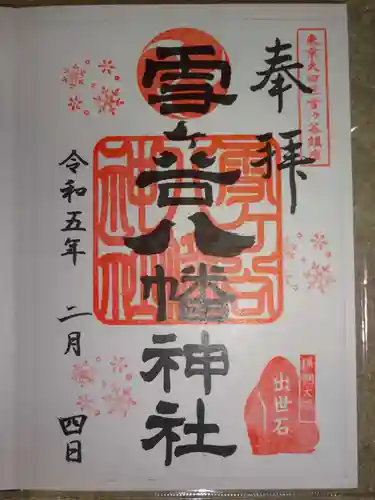 東京大田区雪ヶ谷鎮座
奉拝
雪ヶ谷八幡神社
雪ヶ谷八幡神社
出世石
令和五年 二月 四日